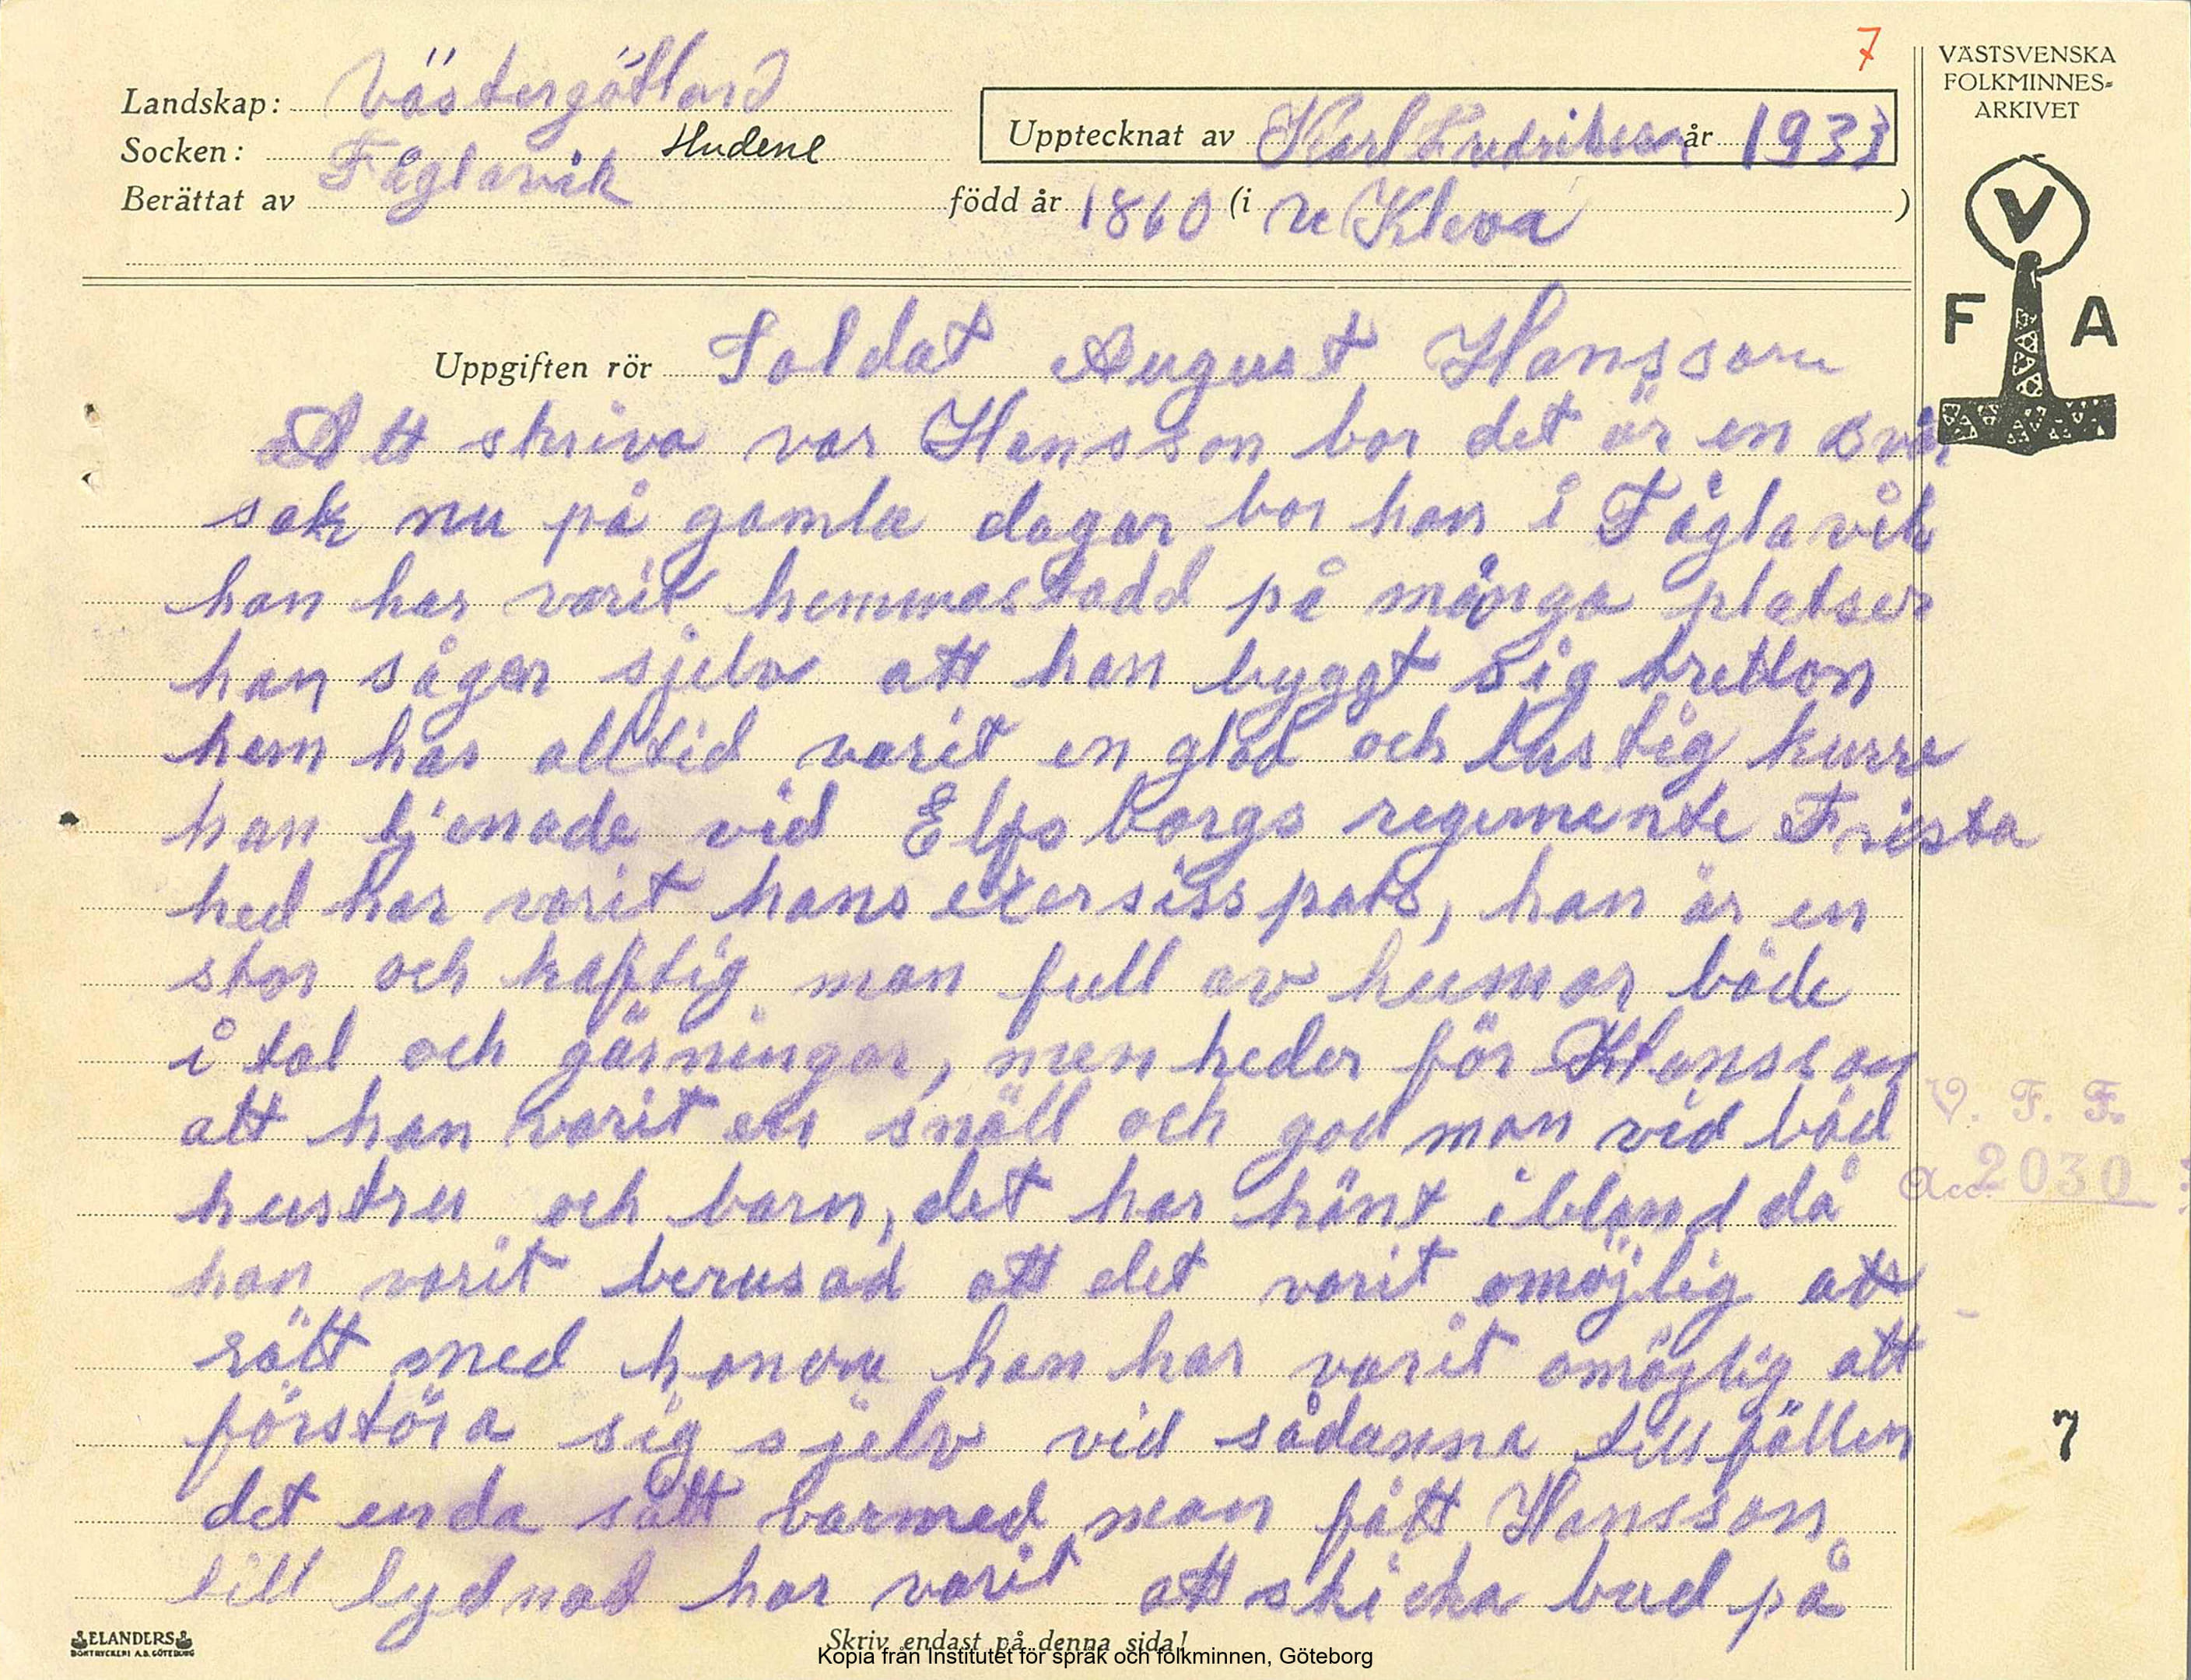 7
VÄSTSVENSKA
FOLKMINNES-
ARKIVET
Landskap: Västergötland
Socken: Fåglavik Hudene
Upptecknat av Karl Fredriksson år 1933
Berättat av
född år 1860 (i N Kleva )
V
F A
Uppgiften rör Soldat August Hansson
Att skriva var Hansson bor det är en svår
sak nu på gamla dagar bor han i Fåglavik
han har varit hemmastadd på många platser
han säger sjelv att han byggt sig tretton
hem har alltid varit en glad och lustig kurre
han tjenade vid Elfsborgs regemente Frista
hed har varit hans exersissplats, han är en
stor och kraftig man full av humor både
i tal och gärningar, men heder för Hansson
att han varit en snäll och god man vid båd
hustru och barn, det har hänt ibland då
han varit berusad att det varit omöjlig att
rått med honom han har varit omöjlig att
förstöra sig sjelv vid sådanna tillfällen
det enda sätt varmed man fått Hansson
till lydnad har varit att skicka bud på
V. F. F.
Acc. 2030
7
ELANDERS
BOKTRYCKERI A.B. GÖTEBORG
Skriv endast på denna sida!
Kopia från Institutet för språk och folkminnen, Göteborg